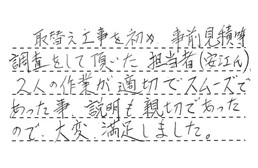 取替え工事を初め 事前見積時
調査をして頂いた 担当者(安江さん)
2人の作業が適切でスムーズで
あった事 説明も親切であった
ので、大変満足しました。